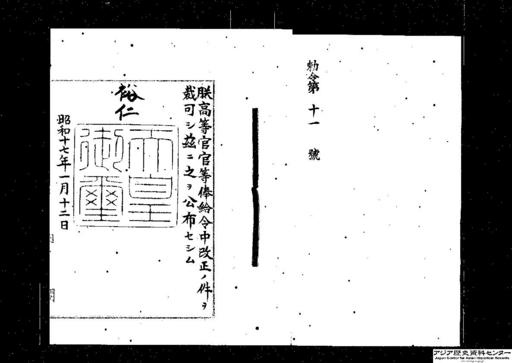 勅令第十一號
朕高等官官等俸給令中改正ノ件ヲ
裁可シ茲ニ之ヲ公布セシム
裕仁
天皇御璽
昭和十七年一月十二日
アジア歴史資料センター
Japan Center for Asian Historical Records